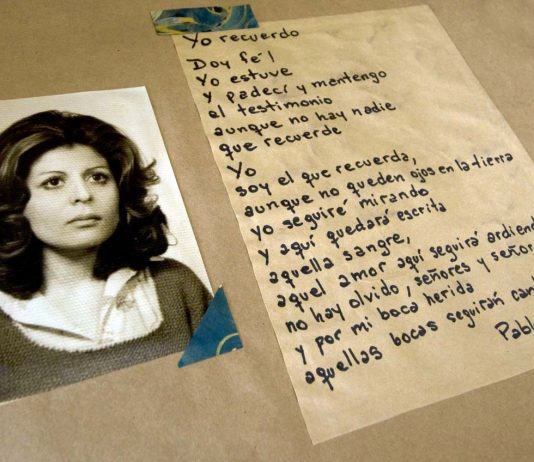 Yo recuerdo
Doy fé!
Yo estuve
y padecí y mantengo
el testimonio
aunque no hay nadie
que recuerde
Yo
soy el que recuerda,
aunque no queden ojos en la tierra
yo seguiré mirando
y aquí quedará escrita
aquella sangre,
aquel amor aquí seguirá ardiend
no hay olvido, señores y señor
y por mi boca herida
aquellas bocas seguirán can
Pabl